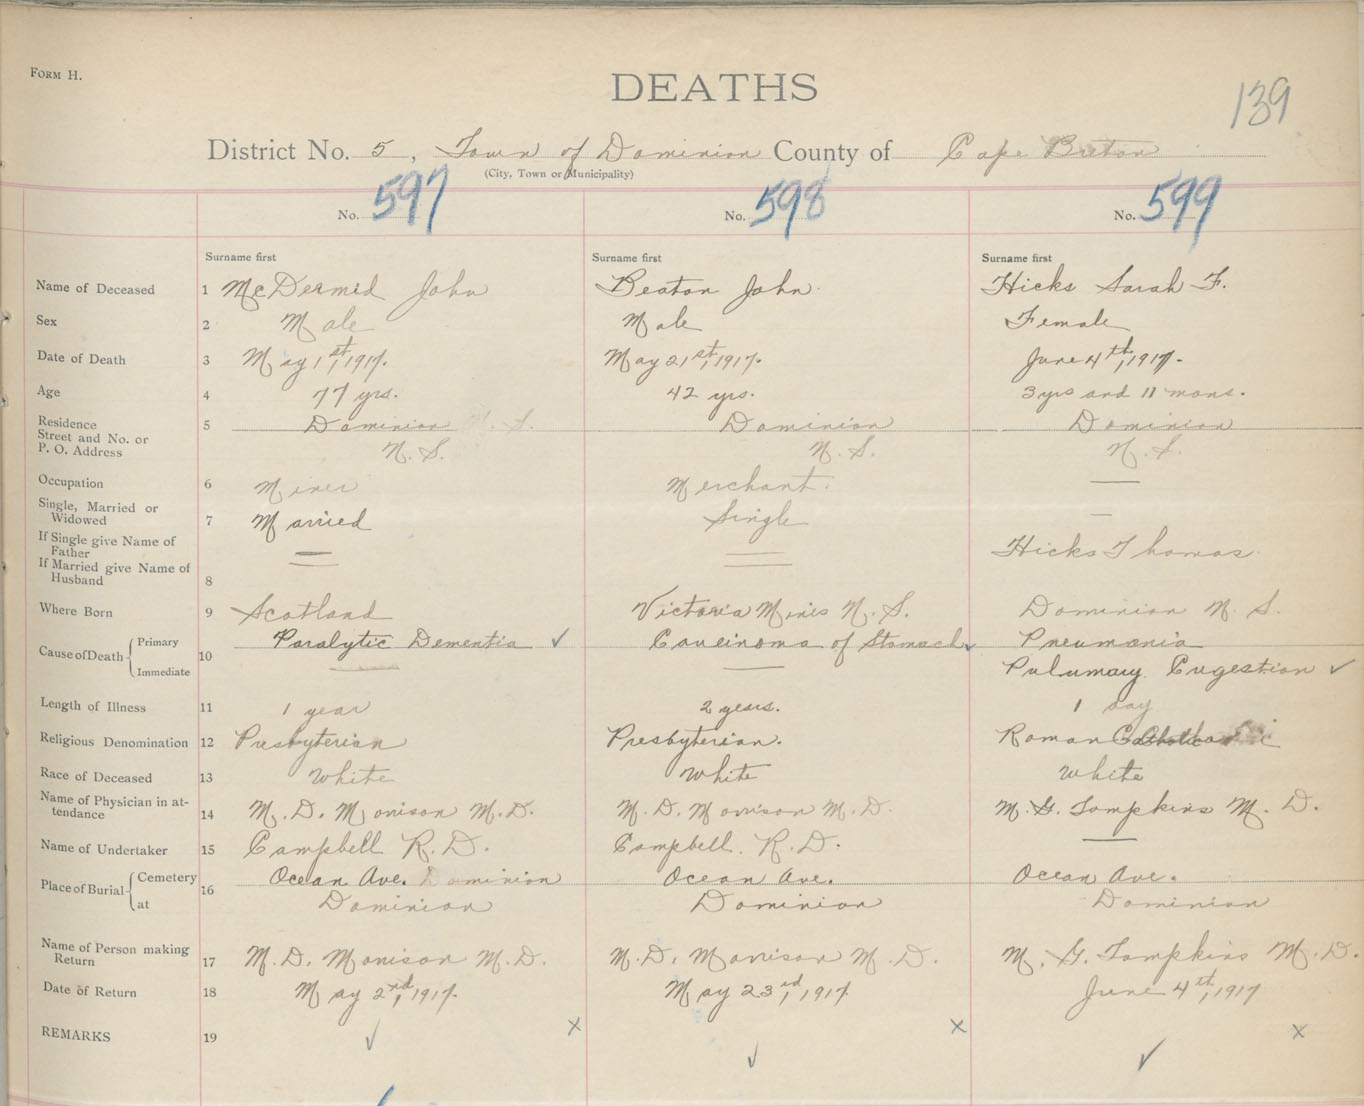 FORM H.
DEATHS
139
District No. 5, Town of Dominion County of Cape Breton
(City, Town or Municipality)
No. 597 No. 598 No. 599
Surname first Surname first Surname first
Name of Deceased 1 McDermid John Beaton John Hicks Sarah F.
Sex 2 Male Male Female
Date of Death 3 May 1st, 1917. May 21st, 1917. June 4th, 1917.
Age 4 77 yrs. 42 yrs. 3 yrs and 11 mons.
Residence 5 Dominion N. S. Dominion Dominion
Street and No. or
P. O. Address N. S. N. S. N. S.
Occupation 6 Miner Merchant. —
Single, Married or
Widowed 7 Married Single —
If Single give Name of
Father Hicks Thomas
If Married give Name of
Husband 8
Where Born 9 Scotland Victoria Mines N. S. Dominion N. S.
Cause of Death 10 Primary Paralytic Dementia ✓ Carcinoma of Stomach ✓ Pneumonia
Immediate Pulumary Cugestion ✓
Length of Illness 11 1 year 2 years. 1 day
Religious Denomination 12 Presbyterian Presbyterian. Roman Catholic
Race of Deceased 13 White White White
Name of Physician in at-
tendance 14 M. D. Morrison M. D. M. D. Morrison M. D. M. G. Tompkins M. D.
Name of Undertaker 15 Campbell R. D. Campbell. R. D. —
Place of Burial 16 Cemetery Ocean Ave. Dominion Ocean Ave. Ocean Ave.
at Dominion Dominion Dominion
Name of Person making
Return 17 M. D. Morrison M. D. M. D. Morrison M. D. M. G. Tompkins M. D.
Date of Return 18 May 2nd, 1917. May 23rd, 1917. June 4th, 1917
REMARKS 19 ✓ x ✓ x ✓ x